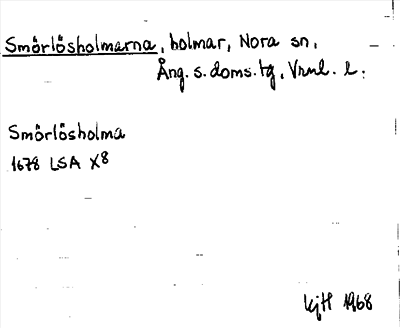 Smörlösholmarna, holmar, Nora sn.
Ång. s. doms. tg, Vrml. l.
Smörlösholma
1678 LSA X8
kjH 1968